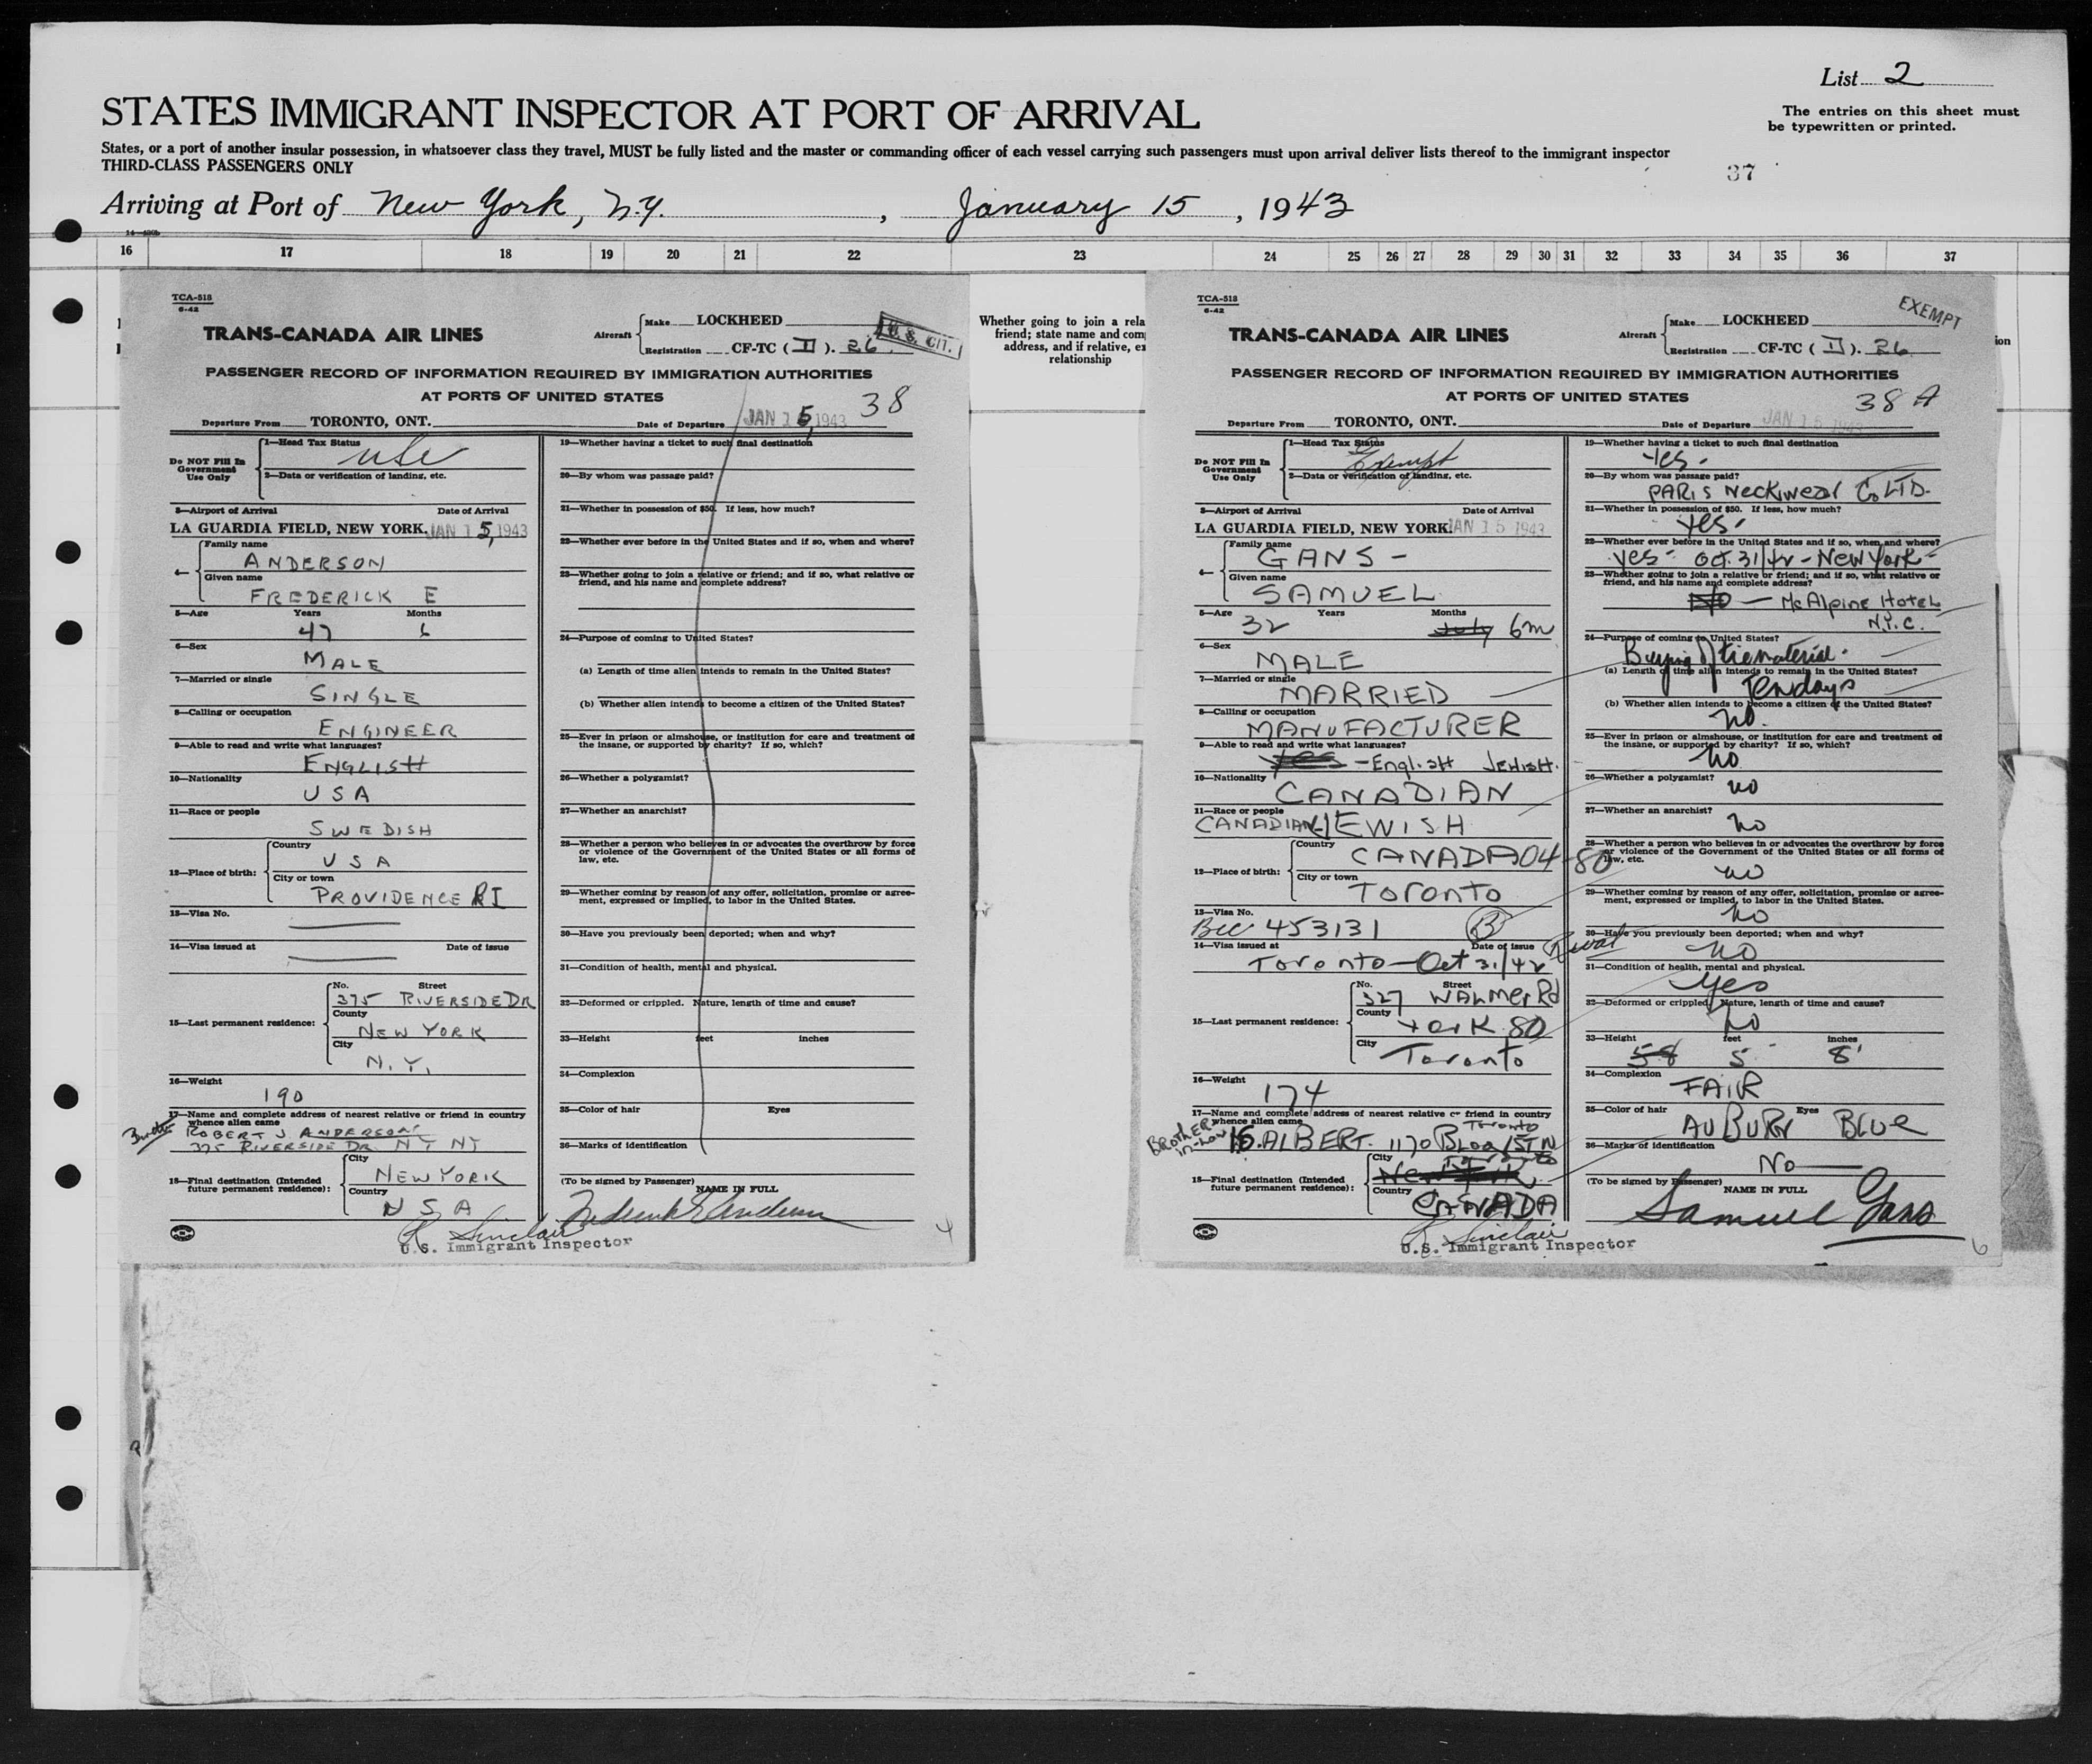 List 2
STATES IMMIGRANT INSPECTOR AT PORT OF ARRIVAL
The entries on this sheet must
be typewritten or printed.
States, or a port of another insular possession, in whatsoever class they travel, MUST be fully listed and the master or commanding officer of each vessel carrying such passengers must upon arrival deliver lists thereof to the immigrant inspector
THIRD-CLASS PASSENGERS ONLY
37
Arriving at Port of New York, N.Y. , January 15 , 1943
16 17 18 19 20 21 22 23 24 25 26 27 28 29 30 31 32 33 34 35 36 37
Whether going to join a rela
friend; state name and com
address, and if relative, ex
relationship
TCA-518
6-42
TRANS-CANADA AIR LINES
Aircraft
Make LOCKHEED
Registration CF-TC ( II ). 26
U. S. CIT.
PASSENGER RECORD OF INFORMATION REQUIRED BY IMMIGRATION AUTHORITIES
AT PORTS OF UNITED STATES
38
Departure From TORONTO, ONT. Date of Departure JAN 15, 1943
Do NOT Fill In
Government
Use Only
1—Head Tax Status
USC
2—Data or verification of landing, etc.
3—Airport of Arrival Date of Arrival
LA GUARDIA FIELD, NEW YORK. JAN 15, 1943
4—
Family name
ANDERSON
Given name
FREDERICK E
5—Age Years Months
47 6
6—Sex
MALE
7—Married or single
SINGLE
8—Calling or occupation
ENGINEER
9—Able to read and write what languages?
ENGLISH
10—Nationality
USA
11—Race or people
SWEDISH
12—Place of birth:
Country
USA
City or town
PROVIDENCE RI
13—Visa No.
14—Visa issued at Date of issue
15—Last permanent residence:
No. Street
375 RIVERSIDE DR
County
NEW YORK
City
N.Y.
16—Weight
190
17—Name and complete address of nearest relative or friend in country
whence alien came
Brother
ROBERT J ANDERSON
375 RIVERSIDE DR NY NY
18—Final destination (Intended
future permanent residence):
City
NEW YORK
Country
USA
19—Whether having a ticket to such final destination
20—By whom was passage paid?
21—Whether in possession of $50. If less, how much?
22—Whether ever before in the United States and if so, when and where?
23—Whether going to join a relative or friend; and if so, what relative or
friend, and his name and complete address?
24—Purpose of coming to United States?
(a) Length of time alien intends to remain in the United States?
(b) Whether alien intends to become a citizen of the United States?
25—Ever in prison or almshouse, or institution for care and treatment of
the insane, or supported by charity? If so, which?
26—Whether a polygamist?
27—Whether an anarchist?
28—Whether a person who believes in or advocates the overthrow by force
or violence of the Government of the United States or all forms of
law, etc.
29—Whether coming by reason of any offer, solicitation, promise or agree-
ment, expressed or implied, to labor in the United States.
30—Have you previously been deported; when and why?
31—Condition of health, mental and physical.
32—Deformed or crippled. Nature, length of time and cause?
33—Height feet inches
34—Complexion
35—Color of hair Eyes
36—Marks of identification
(To be signed by Passenger)
NAME IN FULL
Frederick E Anderson
R Sinclair
U.S. Immigrant Inspector
4
TCA-518
6-42
TRANS-CANADA AIR LINES
Aircraft
Make LOCKHEED
Registration CF-TC ( II ). 26
EXEMPT
ion
PASSENGER RECORD OF INFORMATION REQUIRED BY IMMIGRATION AUTHORITIES
AT PORTS OF UNITED STATES
38 A
Departure From TORONTO, ONT. Date of Departure JAN 15 1943
Do NOT Fill In
Government
Use Only
1—Head Tax Status
Exempt
2—Data or verification of landing, etc.
3—Airport of Arrival Date of Arrival
LA GUARDIA FIELD, NEW YORK. JAN 15 1943
4—
Family name
GANS -
Given name
SAMUEL
5—Age Years Months
32 July 6m
6—Sex
MALE
7—Married or single
MARRIED
8—Calling or occupation
MANUFACTURER
9—Able to read and write what languages?
Yes - English Jewish.
10—Nationality
CANADIAN
11—Race or people
CANADIAN-JEWISH
12—Place of birth:
Country
CANADA 04-80
City or town
TORONTO
13—Visa No.
BCC 453131 B
14—Visa issued at Date of issue
Toronto - Oct 31/42
15—Last permanent residence:
No. Street
327 WALMER Rd
County
York 80
City
Toronto
16—Weight
174
17—Name and complete address of nearest relative or friend in country
whence alien came
Toronto
BROTHER
in-law
ALBERT. 1170 Bloor ST W
18—Final destination (Intended
future permanent residence):
City
New York
Toronto
Country
CANADA
19—Whether having a ticket to such final destination
Yes.
20—By whom was passage paid?
PARIS Neckwear Co LTD.
21—Whether in possession of $50. If less, how much?
Yes.
22—Whether ever before in the United States and if so, when and where?
Yes - Oct. 31/42 - New York -
23—Whether going to join a relative or friend; and if so, what relative or
friend, and his name and complete address?
No - McAlpine Hotel
N.Y.C.
24—Purpose of coming to United States?
Buying of tie material.
(a) Length of time alien intends to remain in the United States?
Ten days
(b) Whether alien intends to become a citizen of the United States?
no.
25—Ever in prison or almshouse, or institution for care and treatment of
the insane, or supported by charity? If so, which?
no
26—Whether a polygamist?
no
27—Whether an anarchist?
no
28—Whether a person who believes in or advocates the overthrow by force
or violence of the Government of the United States or all forms of
law, etc.
no
29—Whether coming by reason of any offer, solicitation, promise or agree-
ment, expressed or implied, to labor in the United States.
no
30—Have you previously been deported; when and why?
no
31—Condition of health, mental and physical.
Yes
32—Deformed or crippled. Nature, length of time and cause?
no
33—Height feet inches
58 5 8'
34—Complexion
FAIR
35—Color of hair Eyes
AUBURN Blue
36—Marks of identification
No
(To be signed by Passenger)
NAME IN FULL
Samuel Gans
R Sinclair
U.S. Immigrant Inspector
6